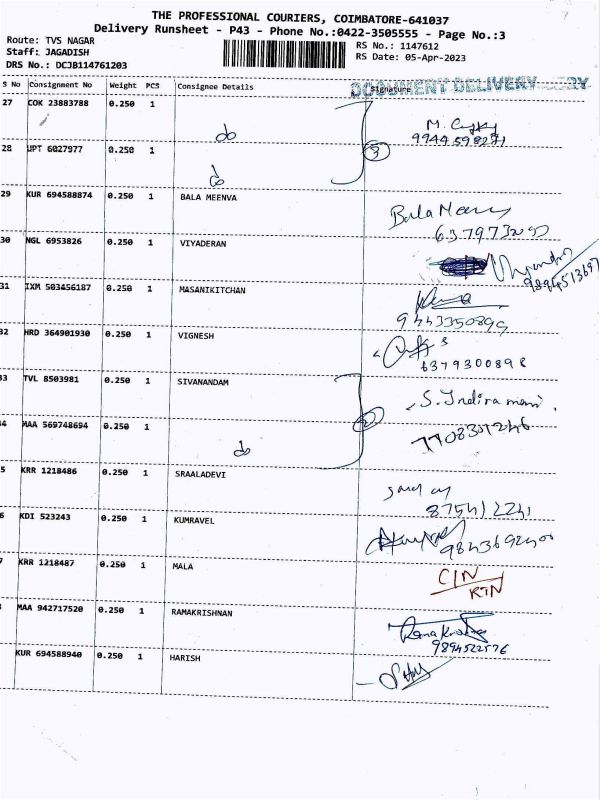 THE PROFESSIONAL COURIERS, COIMBATORE-641037
Delivery Runsheet - P43 - Phone No.:0422-3505555 - Page No.:3
Route: TVS NAGAR
Staff: JAGADISH
DRS No.: DCJB114761203
RS No.: 1147612
RS Date: 05-Apr-2023
S No Consignment No Weight PCS Consignee Details Signature
DOCUMENT DELIVERY
27 COK 23883788 0.250 1 do
M.
28 UPT 6027977 0.250 1 do
3
29 KUR 694588874 0.250 1 BALA MEENVA
Bala Meena
30 NGL 6953826 0.250 1 VIYADERAN
31 IXM 503456187 0.250 1 MASANIKITCHAN
32 HRD 364901930 0.250 1 VIGNESH
6379300898
33 TVL 8503981 0.250 1 SIVANANDAM
S. Indira mani
2
4 MAA 569748694 0.250 1 do
7708301246
5 KRR 1218486 0.250 1 SRAALADEVI
6 KDI 523243 0.250 1 KUMRAVEL
7 KRR 1218487 0.250 1 MALA
C/N
RTN
MAA 942717520 0.250 1 RAMAKRISHNAN
Ramakrishna
9894522576
KUR 694588940 0.250 1 HARISH